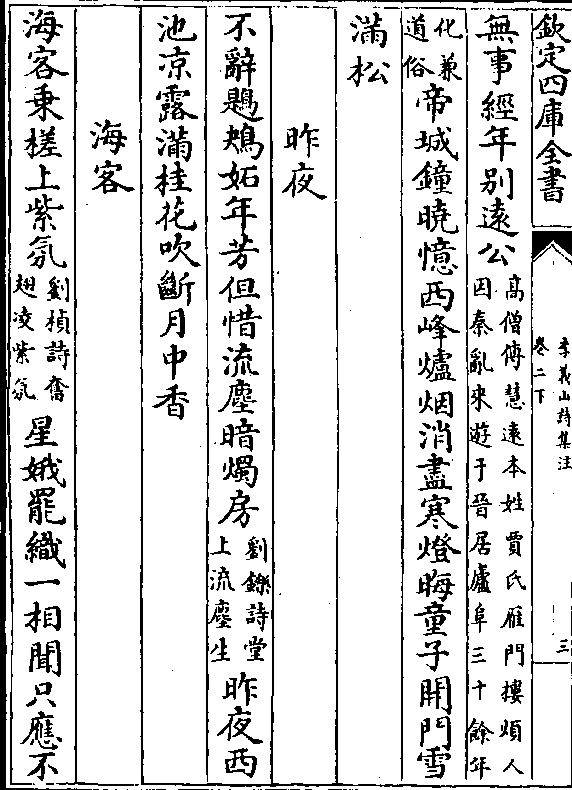 欽定四庫全書
李義山詩集注
卷二下
三
無事經年别遠公
高僧傳慧遠本姓賈氏雁門樓煩人
因秦亂來遊于晉居廬阜三十餘年
化兼
道俗
帝城鐘曉憶西峰爐烟消盡寒燈晦童子開門雪
滿松
昨夜
不辭鶗鴂妬年芳但惜流塵暗燭房
劉鑠詩堂
上流塵生
昨夜西
池凉露滿桂花吹斷月中香
海客
海客乗槎上紫氛
劉楨詩奮
翅凌紫氛
星娥罷織一相聞只應不